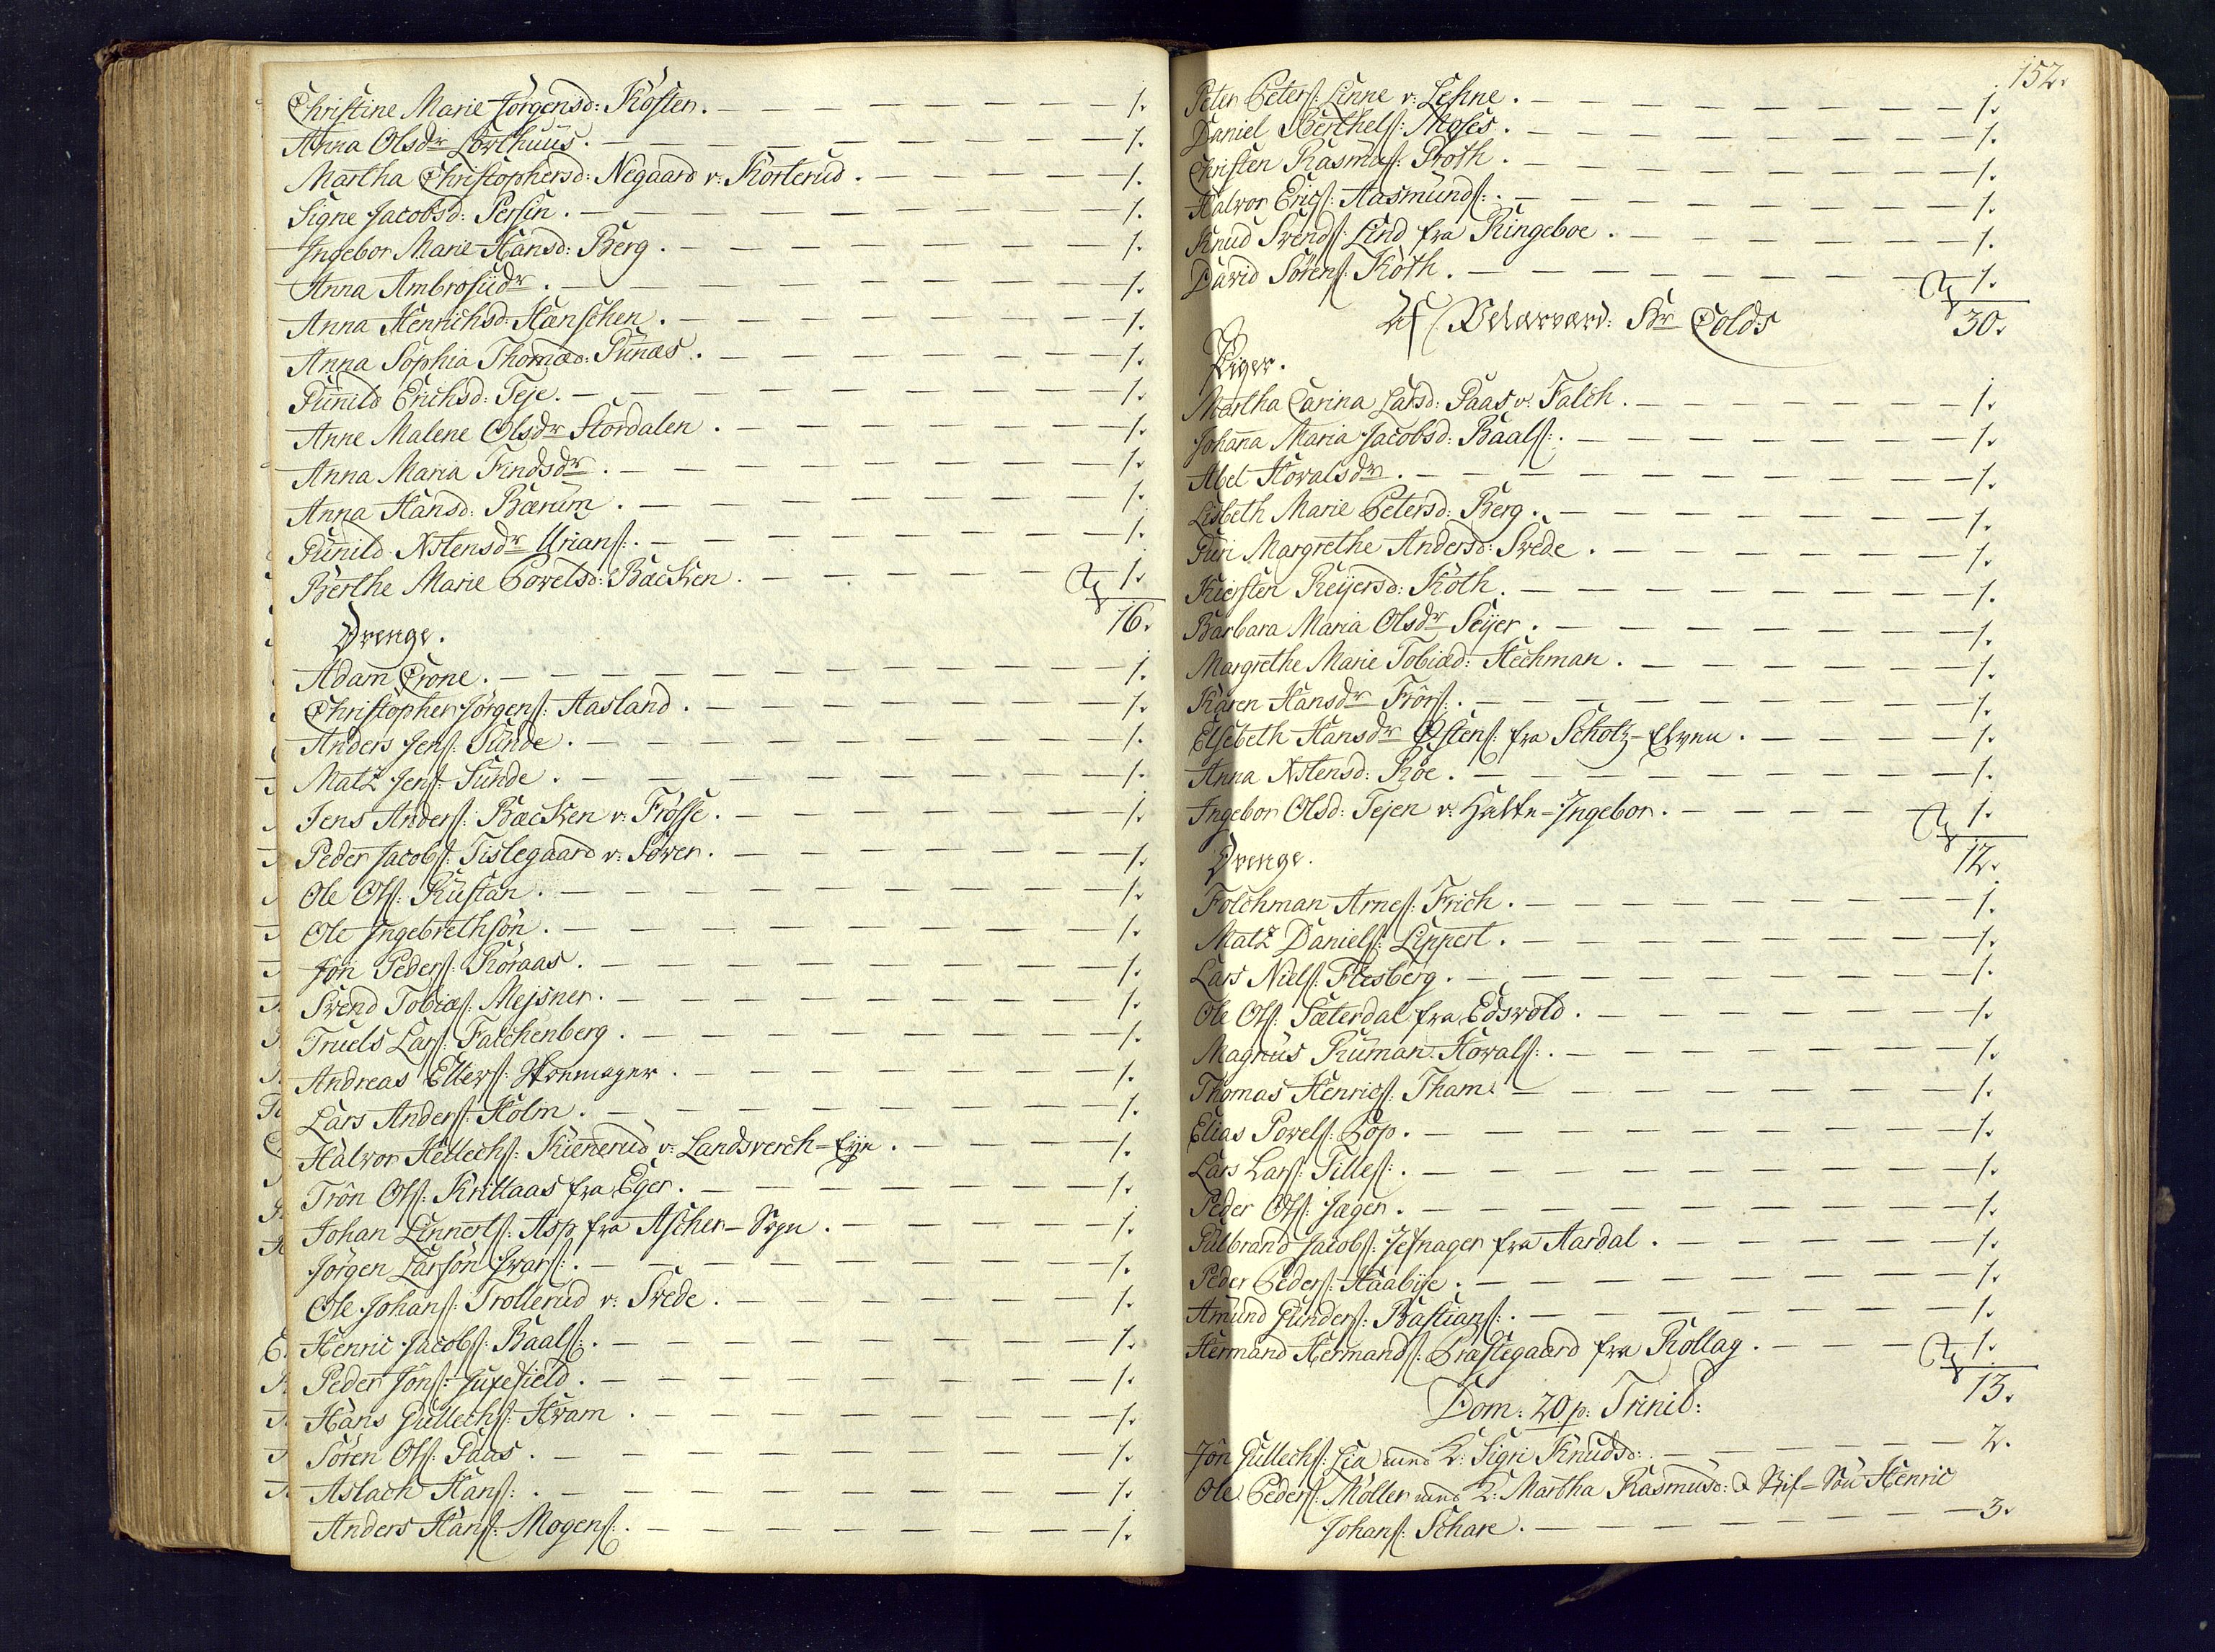 Christine Marie Jörgensd: Kosten. 1.
Anna Olsdr Lorthuus. 1.
Martha Christophersd: Negaard v: Korterud. 1.
Signe Jacobsd: Persin. 1.
Ingebor Marie Hansd: Berg. 1.
Anna Ambrosiidr. 1.
Anna Henrichsd: Hanschen. 1.
Anna Sophia Thomæd: Funæs. 1.
Gunild Erichsd: Teje. 1.
Anne Malene Olsdr Stordalen. 1.
Anna Maria Findsdr. 1.
Anna Hansd: Bærum. 1.
Gunild Nstensdr Urians: 1.
Berthe Marie Povelsd: Backen. 1.
16.
Drenge.
Adam Crone. 1.
Christopher Jörgens: Aasland. 1.
Anders Jens: Sunde. 1.
Matz Jens: Sunde. 1.
Jens Anders: Backen v: Frosse. 1.
Peder Jacobs: Tislegaard v: Sover. 1.
Ole Ols: Rustan. 1.
Ole Ingebrethsön. 1.
Jon Peders: Röraas. 1.
Svend Tobiæs: Mejsner. 1.
Truels Lars: Falchenberg. 1.
Andreas Ellers: 1.
Lars Anders: Holm. 1.
Halvor Hellechs: Kiennerud v: Landsverch-Eje. 1.
Trön Ols: Krillaas fra Eger. 1.
Johan Linnerts: Asp fra Ascher-Sogn. 1.
Jörgen Larsön Ivars: 1.
Ole Johans: Trollerud v: Svede. 1.
Henric Jacobs: Baals: 1.
Peder Jöns: Juxefield. 1.
Hans Gullechs: Hvam. 1.
Sören Ols: Paas. 1.
Aslach Hans: 1.
Anders Hans: Mogens: 1.
152.
Peter Peters: Linne v: Lehne. 1.
Daniel Berthels: Moses. 1.
Christen Rasmus: Proth. 1.
Halvor Erics: Aasmunds: 1.
Knud Svends: Lind fra Ringeboe. 1.
David Sörens: Koth. 1.
Af Velærværd: Hr Colds 30.
Piger.
Martha Carina Larsd: Paas v: Falch. 1.
Johanna Maria Jacobsd: Baals: 1.
Abel Hovalsdr. 1.
Lisbeth Marie Petersd: Berg. 1.
Guri Margrethe Andersd: Svede. 1.
Kiersten Reijersd: Koth. 1.
Barbara Maria Olsdr Seijer. 1.
Margrethe Marie Tobiæd: Hechman. 1.
Karen Hansdr Frörs: 1.
Elsebeth Hansdr Ostens: fra Scholz-Elven. 1.
Anna Nstensd: Roe. 1.
Ingebor Olsd: Tejen v: Halte-Ingebor. 1.
12.
Drenge.
Folchman Arnes: Frich. 1.
Matz Daniels: Lippert. 1.
Lars Niels: Flesberg. 1.
Ole Ols: Sæterdal fra Edsvold. 1.
Magnus Ruman Hovals: 1.
Thomas Henrics: Tham. 1.
Elias Povels: Lop. 1.
Lars Lars: Tilles: 1.
Peder Ols: Jæger. 1.
Gulbrand Jacobs: Jesnager fra Aardal. 1.
Peder Peders: Haabije. 1.
Amund Gunders: Bastians: 1.
Hermand Hermands: Præstegaard fra Rollag. 1.
13.
Dom: 20 p: Trinit:
Jon Gullechs: Lia und K: Sigri Knudsd: 2.
Ole Peders: Möller und K: Martha Rasmusd: & Stif-Sön Henric
Johans: Schare. 3.